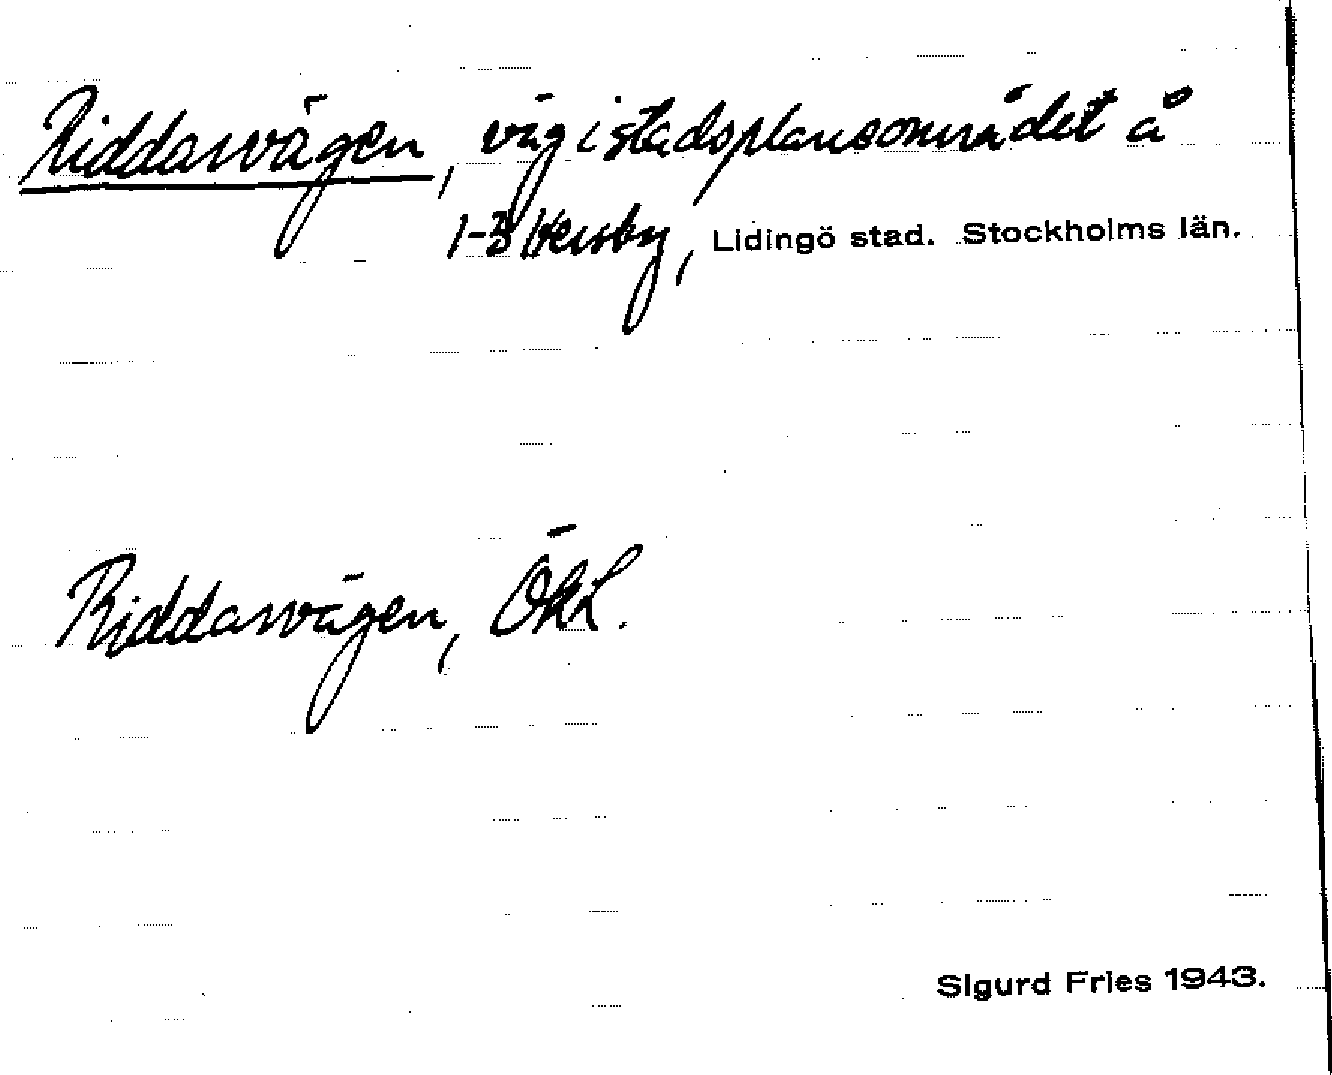 Riddarvägen, väg i stadsplaneområdet å
1-3 Hersby, Lidingö stad. Stockholms län.
Riddarvägen, ÖKL.
Sigurd Fries 1943.